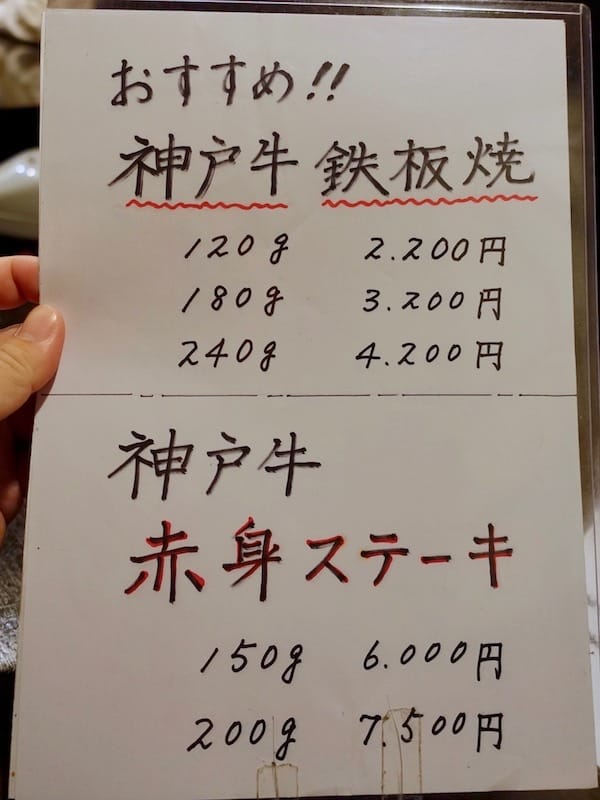 おすすめ!!
神戸牛 鉄板焼
120g 2.200円
180g 3.200円
240g 4.200円
神戸牛
赤身ステーキ
150g 6.000円
200g 7.500円